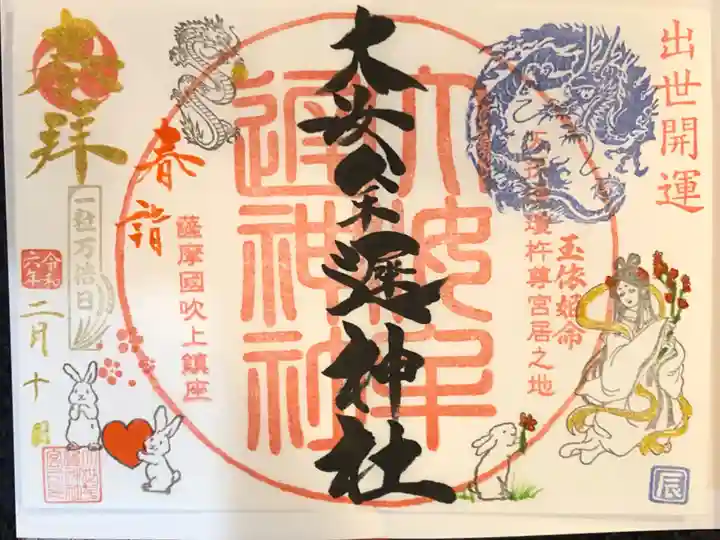 出世開運
玉依姫命
瓊杵尊宮居之地
大汝牟遲神社
大汝牟
遲神社
薩摩國吹上鎮座
春詣
奉拝
一粒万倍日
令和
六年
二月十日
辰